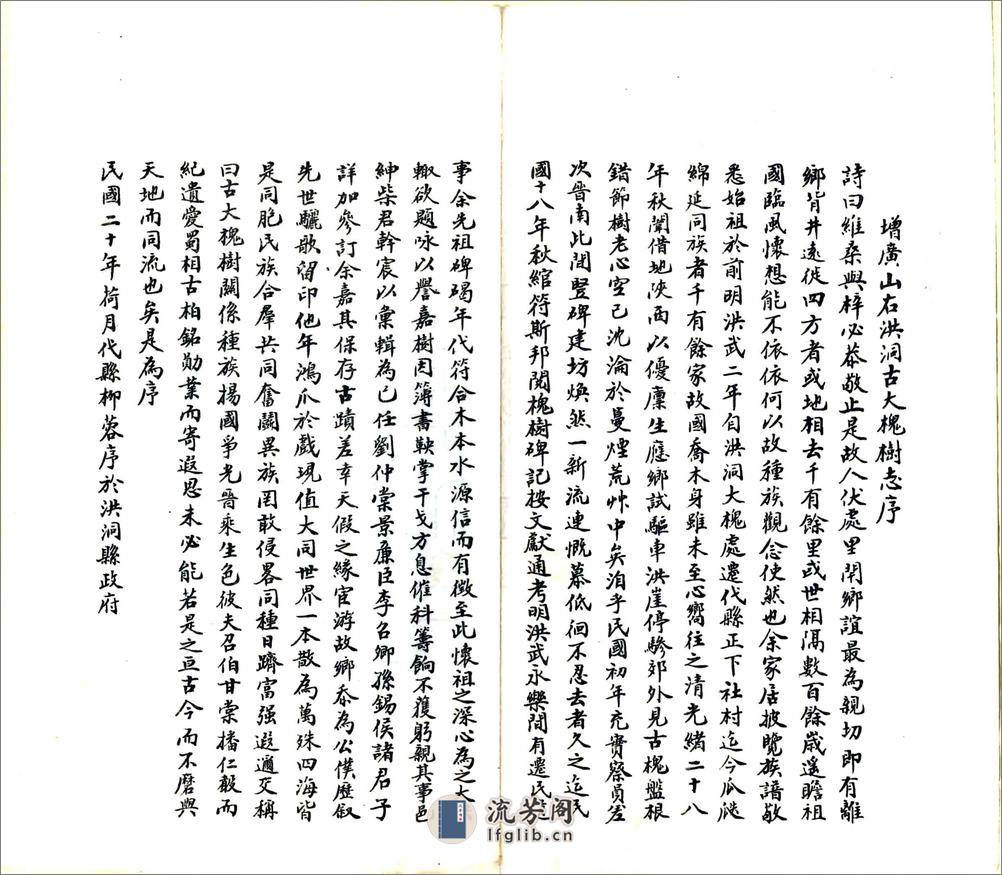 增廣山右洪洞古大槐樹志序
詩曰維桑與梓必恭敬止是故人伏處里閈鄉誼最為親切即有離
鄉背井遠徙四方者或地相去千有餘里或世相隔數百餘歲遙瞻祖
國臨風懷想能不依依何以故種族觀念使然也余家居披覽族譜敬
悉始祖於前明洪武二年自洪洞大槐處遷代縣正下社村迄今瓜瓞
綿延同族者千有餘家故國喬木身雖未至心嚮往之清光緒二十八
年秋闈借地陝西以優廩生應鄉試驅車洪崖停驂郊外見古槐盤根
錯節樹老心空已沈淪於蔓煙荒艸中矣洎乎民國初年充實察員差
次晉南此間豎碑建坊煥然一新流連慨慕低徊不忍去者久之迄民
國十八年秋綰符斯邦閱槐樹碑記按文獻通考明洪武永樂間有遷民
事余先祖碑碣年代符合木本水源信而有徵至此懷祖之深心為之大
輙欲題咏以譽嘉樹因簿書鞅掌干戈方息催科籌餉不獲躬親其事邑
紳柴君幹宸以彙輯為已任劉仲棠景廉臣李名卿孫錫侯諸君子
詳加參訂余嘉其保存古蹟差幸天假之緣宦游故鄉忝為公僕歷叙
先世驪歌留印他年鴻爪於戲現值大同世界一本散為萬殊四海皆
是同胞民族合羣共同奮鬭異族罔敢侵畧同種日躋富强遐邇交稱
曰古大槐樹關係種族揚國爭光晉乘生色彼夫召伯甘棠播仁聲而
紀遺愛蜀相古柏銘勛業而寄遐思未必能若是之亘古今而不磨與
天地而同流也矣是為序
民國二十年荷月代縣柳蓉序於洪洞縣政府
流芳阁
lfglib.cn